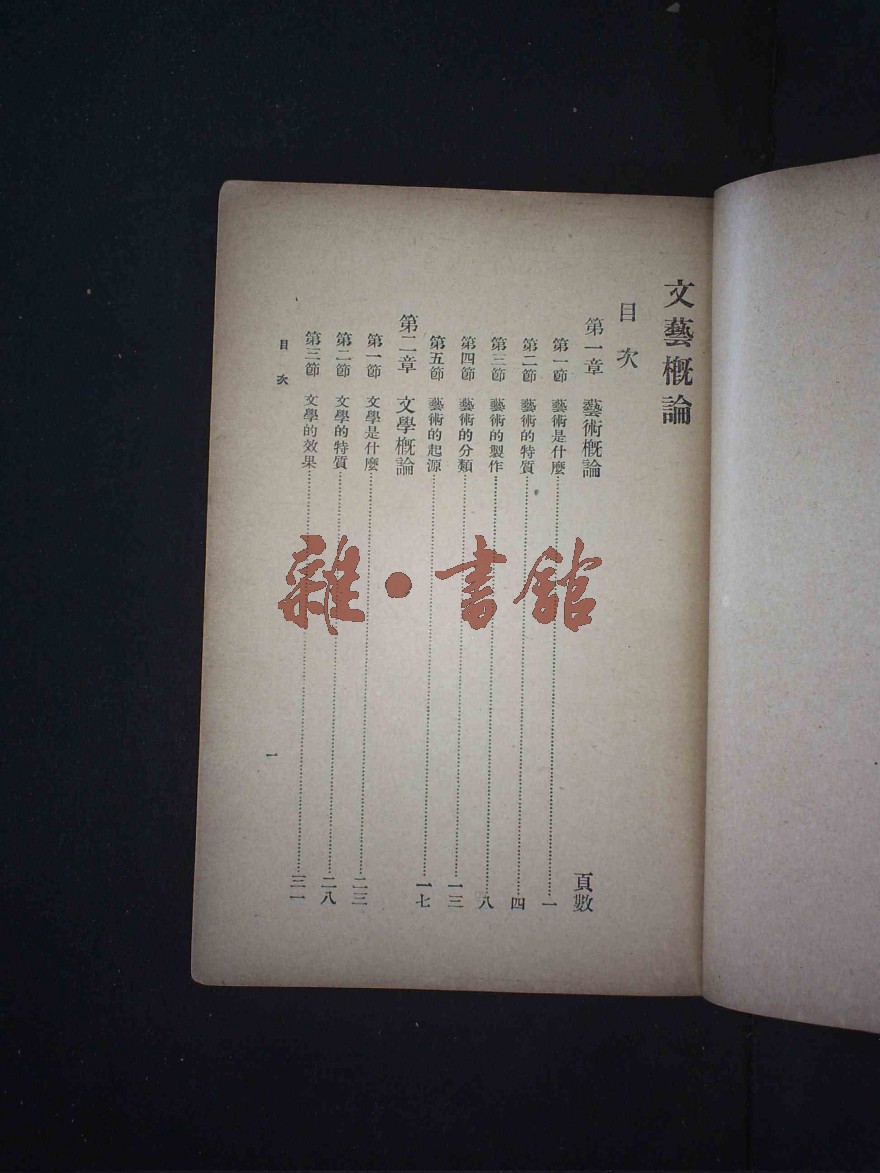 文藝概論
目次
第一章 藝術概論 頁數
第一節 藝術是什麼 一
第二節 藝術的特質 四
第三節 藝術的製作 八
第四節 藝術的分類 一三
第五節 藝術的起源 一七
第二章 文學概論
第一節 文學是什麼 二三
第二節 文學的特質 二八
第三節 文學的效果 三一
目次 一
雜·書館